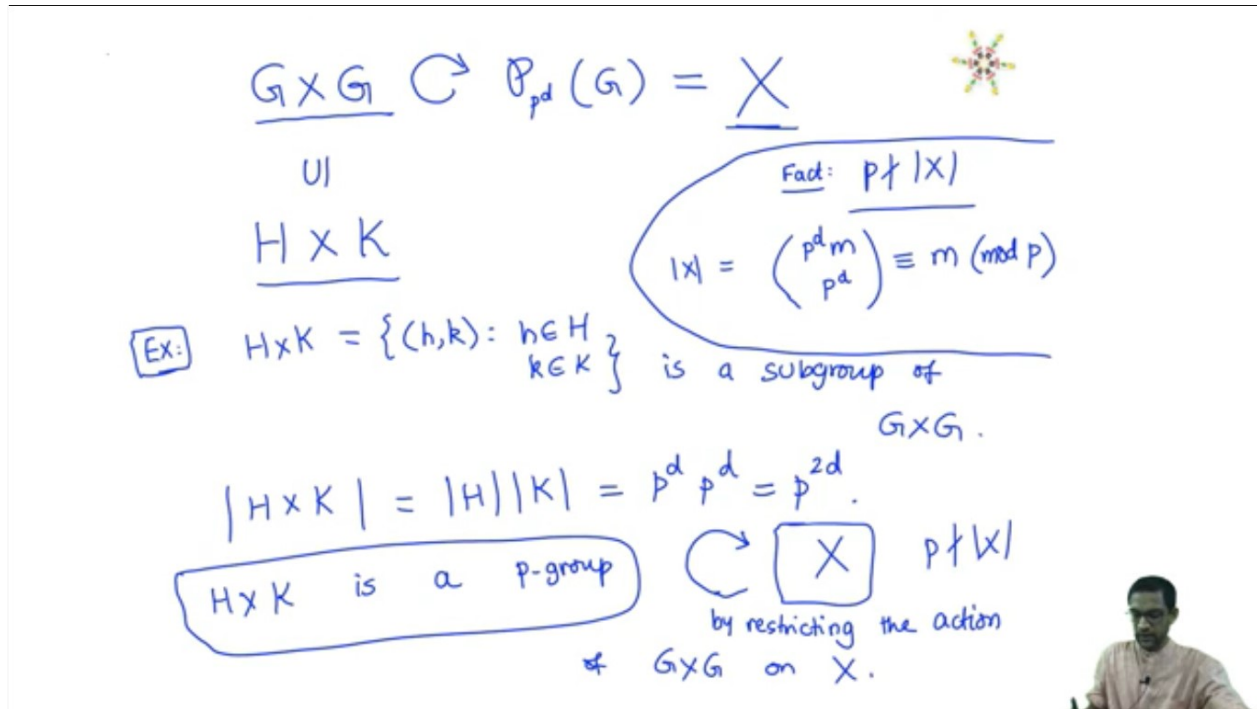 G×G ↻ P_{p^d}(G) = X
UI
H×K
Fact: p∤|X|
|X| = (p^d m p^d) ≡ m (mod p)
Ex: H×K = {(h,k): h∈H
k∈K} is a subgroup of
G×G.
|H×K| = |H||K| = p^d p^d = p^{2d}.
H×K is a p-group ↻ X p∤|X|
by restricting the action
of G×G on X.